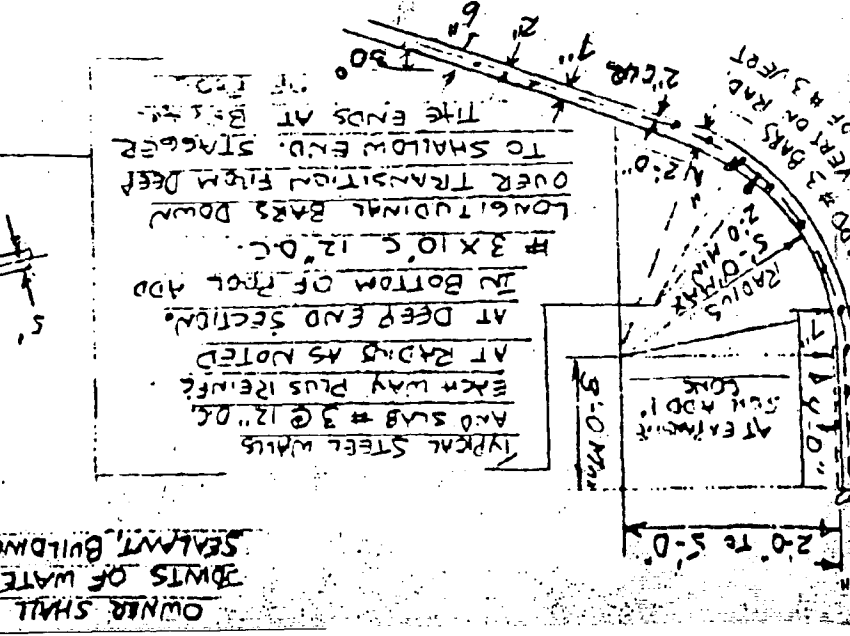 OWNER SHALL
JOINTS OF WATE
SEALANT, BUILDING
2'-0" TO 5'-0"
TYPICAL STEEL WALLS
AND SLAB # 3 @ 12" O.C.
EACH WAY PLUS REINF'G
AT RADIUS AS NOTED
AT DEEP END SECTION.
IN BOTTOM OF POOL ADD
# 3 X 10' @ 12" O.C.
LONGITUDINAL BARS DOWN
OVER TRANSITION FROM DEEP
TO SHALLOW END. STAGGER
THE ENDS AT
3'-0 MAX
ADD 1"
CONC
4'-0"
1"
RADIUS
5'-0" MAX
2'-0 MIN
2'-0"
ADD # 3 BARS
VERT ON RAD.
OF # 3 VERT
2" CLR.
1"
2"
6"
30°
5"